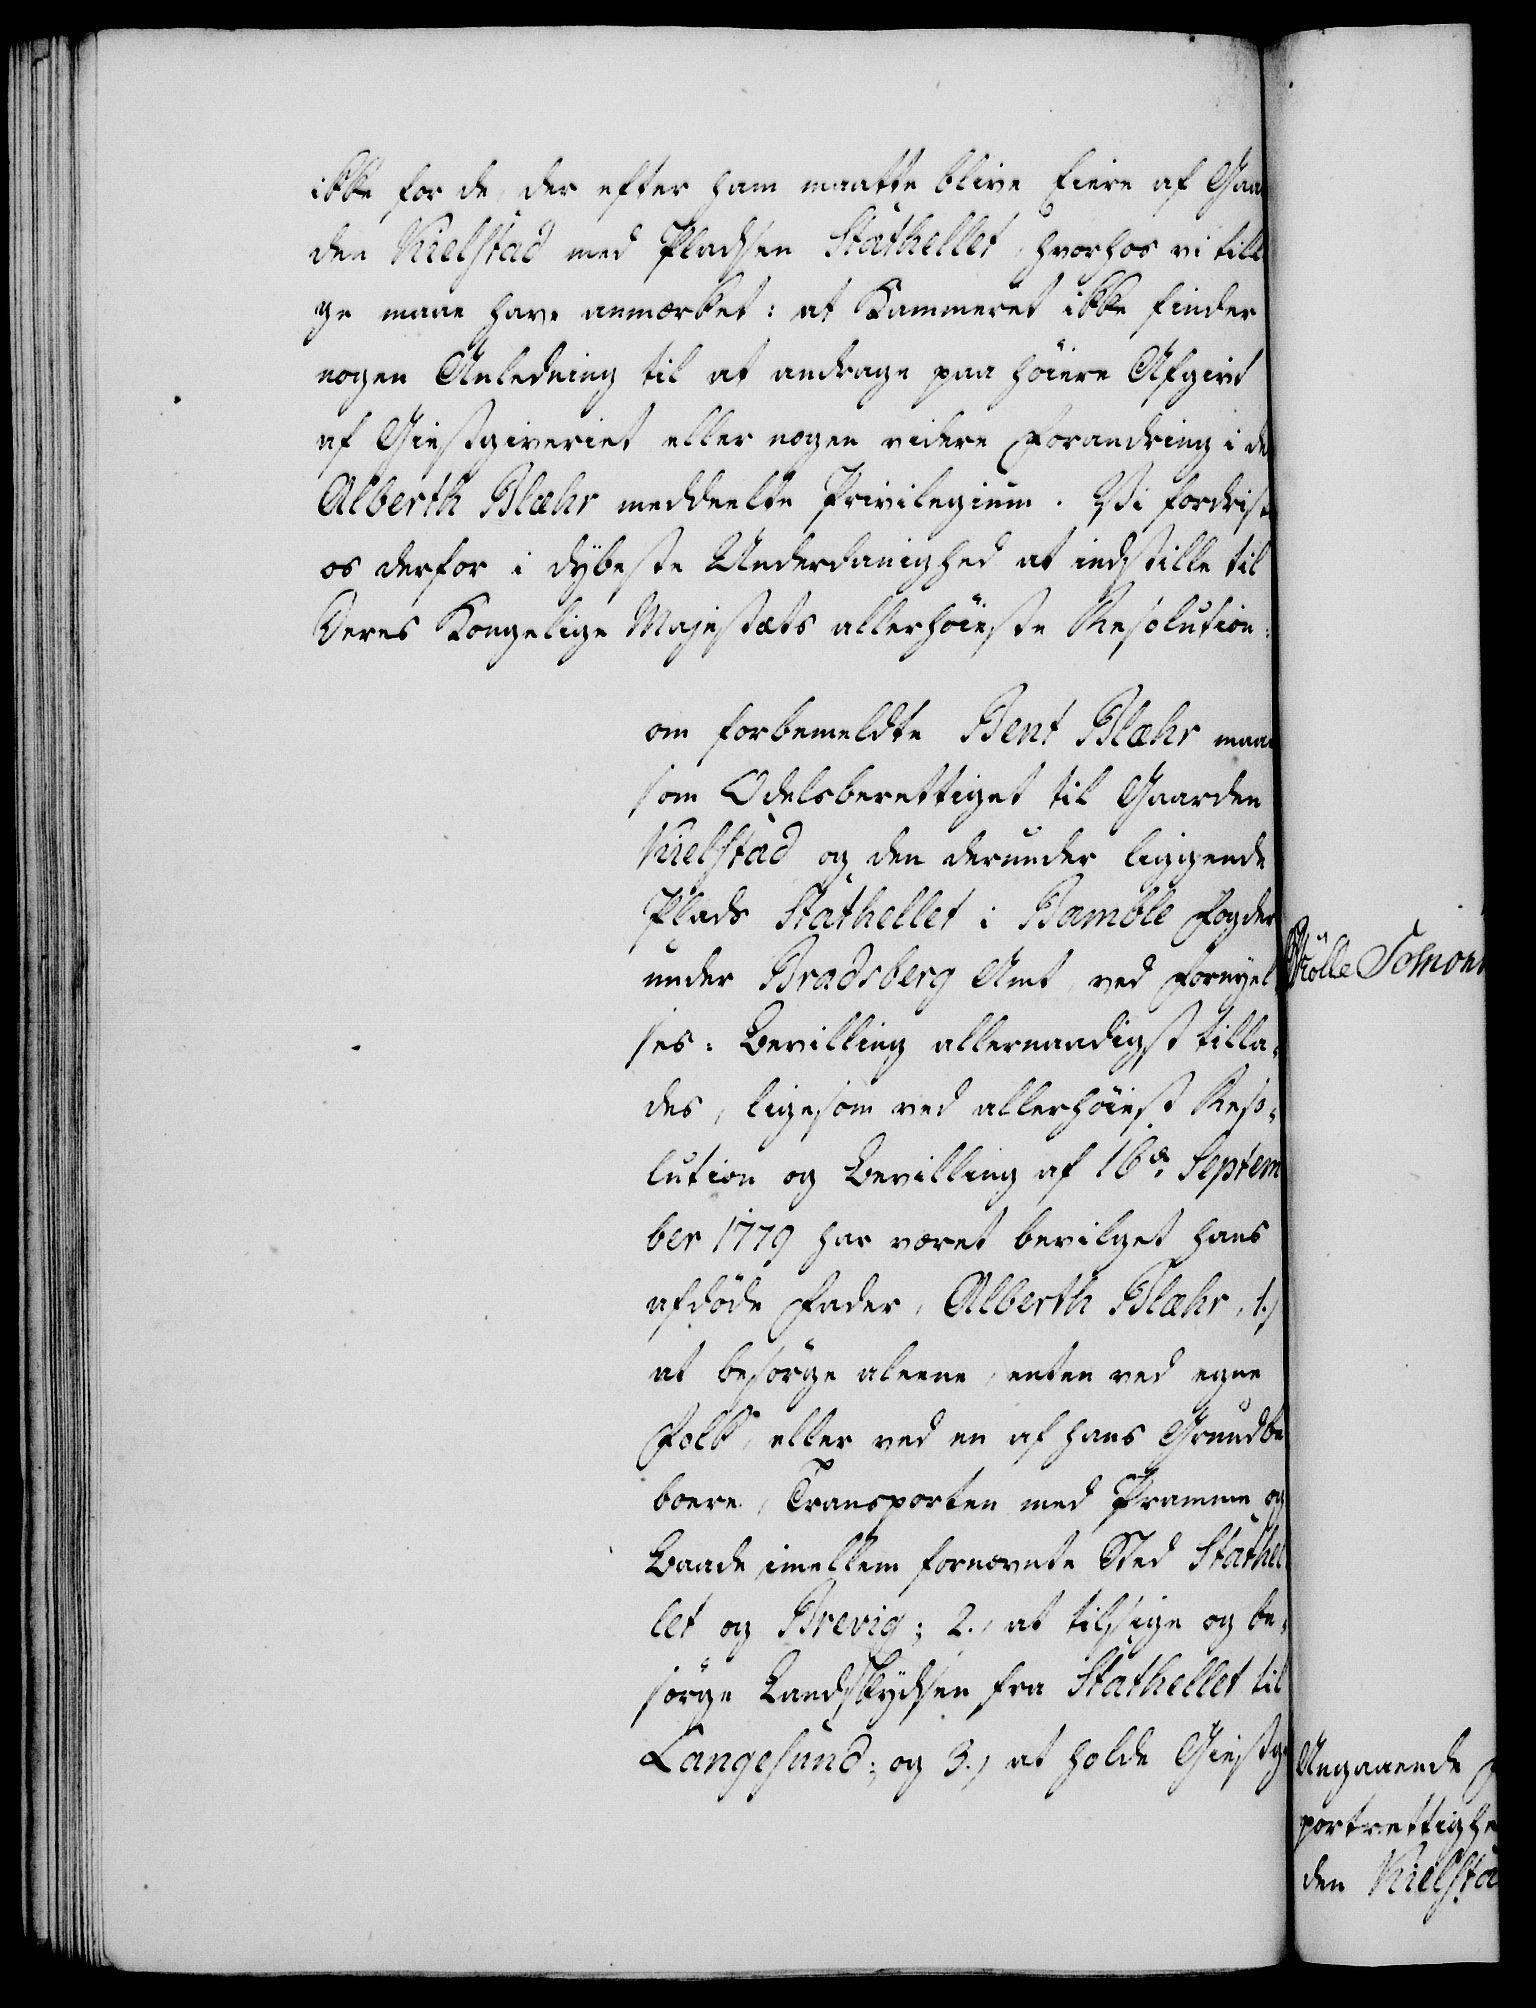 ikke for de, der efter ham maatte blive Eiere af Gaa
den Kielstad med Pladsen Stathellet, hvorhos vi till
ge maae have anmærket: at Kammeret ikke finder
nogen Anledning til at andrage paa høiere Afgivt
af Giestgiveriet eller nogen videre Forandring i de
Alberth Blæhr meddeelte Privilegium. Vi fordrist
os derfor i dybeste Underdanighed at indstille til
Deres Kongelige Majestæts allerhøieste Resolution:
om forbemeldte Bent Blæhr maa
som Odelsberettiget til Gaarden
Kielstad og den derunder liggende
Plads Stathellet i Bamble Fogder
under Bradsberg Amt, ved Fornyel
ses-Bevilling allernaadigst tilla-
des, ligesom ved allerhøiest Reso-
lution og Bevilling af 16de Septem
ber 1779 har været bevilget hans
afdøde Fader, Alberth Blæhr, 1.)
at besørge aleene, enten ved egne
Folk, eller ved en af hans Grundbe
boere, Transporten med Pramme og
Baade imellem fornævnte Sted Stathel
let og Brevig; 2.) at tilsige og be-
sørge Landskydsen fra Stathellet til
Langesund; og 3.) at holde Giestg
Angaaende
portrettighe
den Kielsta